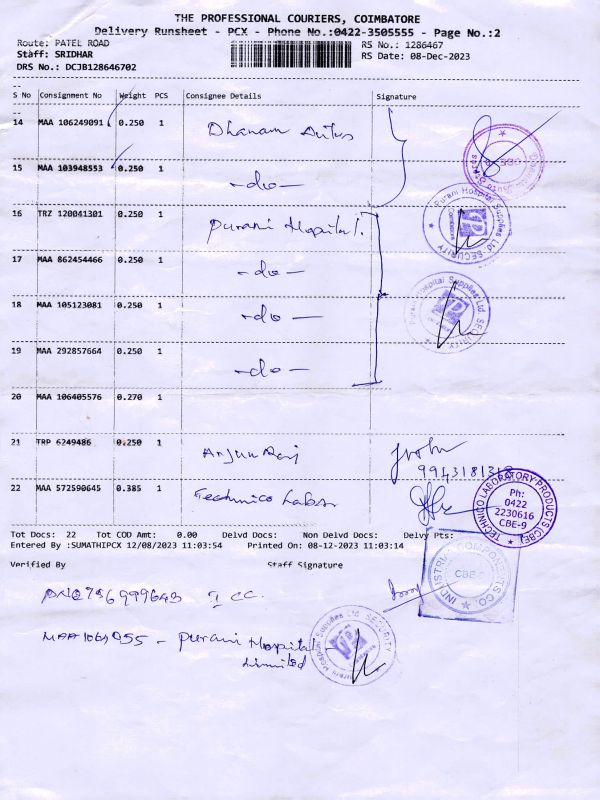 THE PROFESSIONAL COURIERS, COIMBATORE
Delivery Runsheet - PCX - Phone No.:0422-3505555 - Page No.:2
Route: PATEL ROAD RS No.: 1286467
Staff: SRIDHAR RS Date: 08-Dec-2023
DRS No.: DCJB128646702
S No Consignment No Weight PCS Consignee Details Signature
14 MAA 106249091 0.250 1 Dhanam
15 MAA 103948553 0.250 1 -do-
16 TRZ 120041301 0.250 1 Purani Hospital.
Purani Hospital Supplies Ltd SECURITY
17 MAA 862454466 0.250 1 -do-
18 MAA 105123081 0.250 1 -do-
Purani Hospital Supplies Ltd. SECURITY
19 MAA 292857664 0.250 1 -do-
20 MAA 106405576 0.270 1
21 TRP 6249486 0.250 1 Arjun Raj
22 MAA 572590645 0.385 1 Technico
TECHNICO LABORATORY PRODUCTS (CBE)
Ph:
0422
2230616
CBE-9
Tot Docs: 22 Tot COD Amt: 0.00 Delvd Docs: Non Delvd Docs: Delvy Pts:
Entered By :SUMATHIPCX 12/08/2023 11:03:54 Printed On: 08-12-2023 11:03:14
Verified By Staff Signature
INDUSTRIAL COMPONENTS CO.
CBE-9
Purani Hospital
Limited
Purani Hospital Supplies Ltd SECURITY